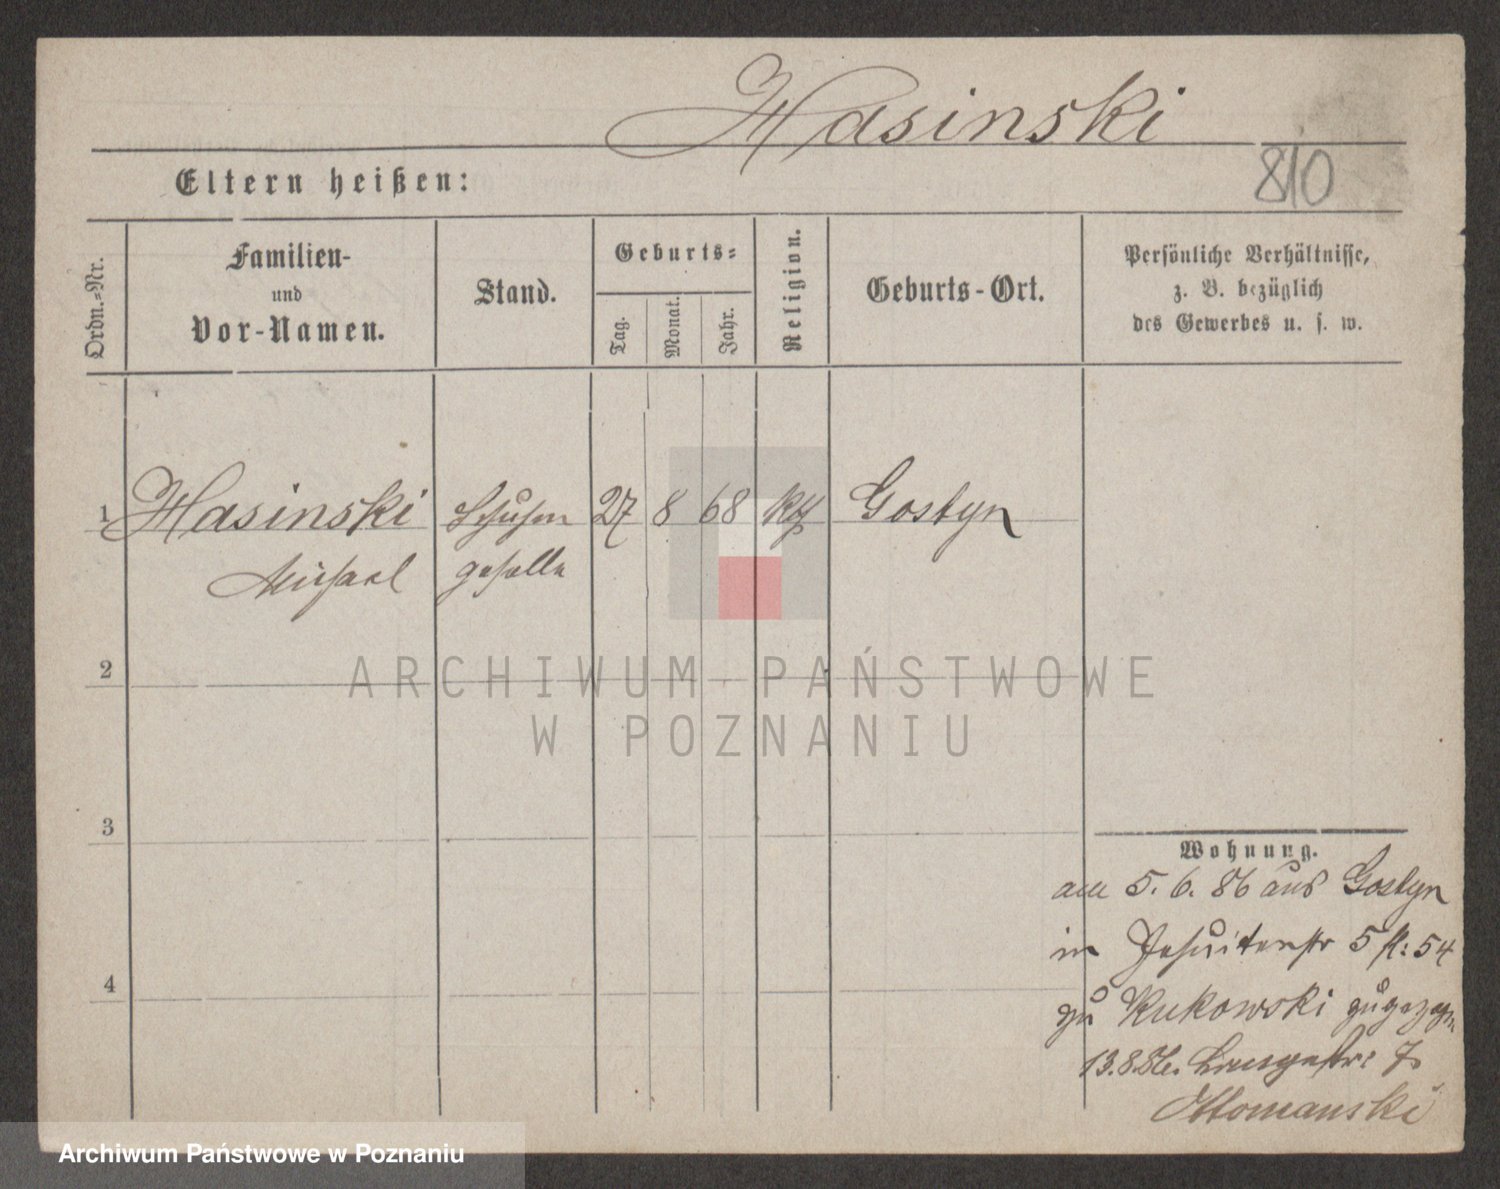 Hasinski
810
Eltern heißen:
Ordn.-Nr.
Familien-
und
Vor-Namen.
Stand.
Geburts-
Tag.
Monat.
Jahr.
Religion.
Geburts-Ort.
Persönliche Verhältnisse,
z. B. bezüglich
des Gewerbes u. s. w.
1 Hasinski 27 8 68 kth Gostyn
Michael geselle
2
ARCHIWUM PAŃSTWOWE
W POZNANIU
3
4
Wohnung.
am 5. 6. 86 aus Gostyn
in Jesuitenstr 5 54
zu Kukowski zugezogen
13.8.86. Langestr: 7
Archiwum Państwowe w Poznaniu